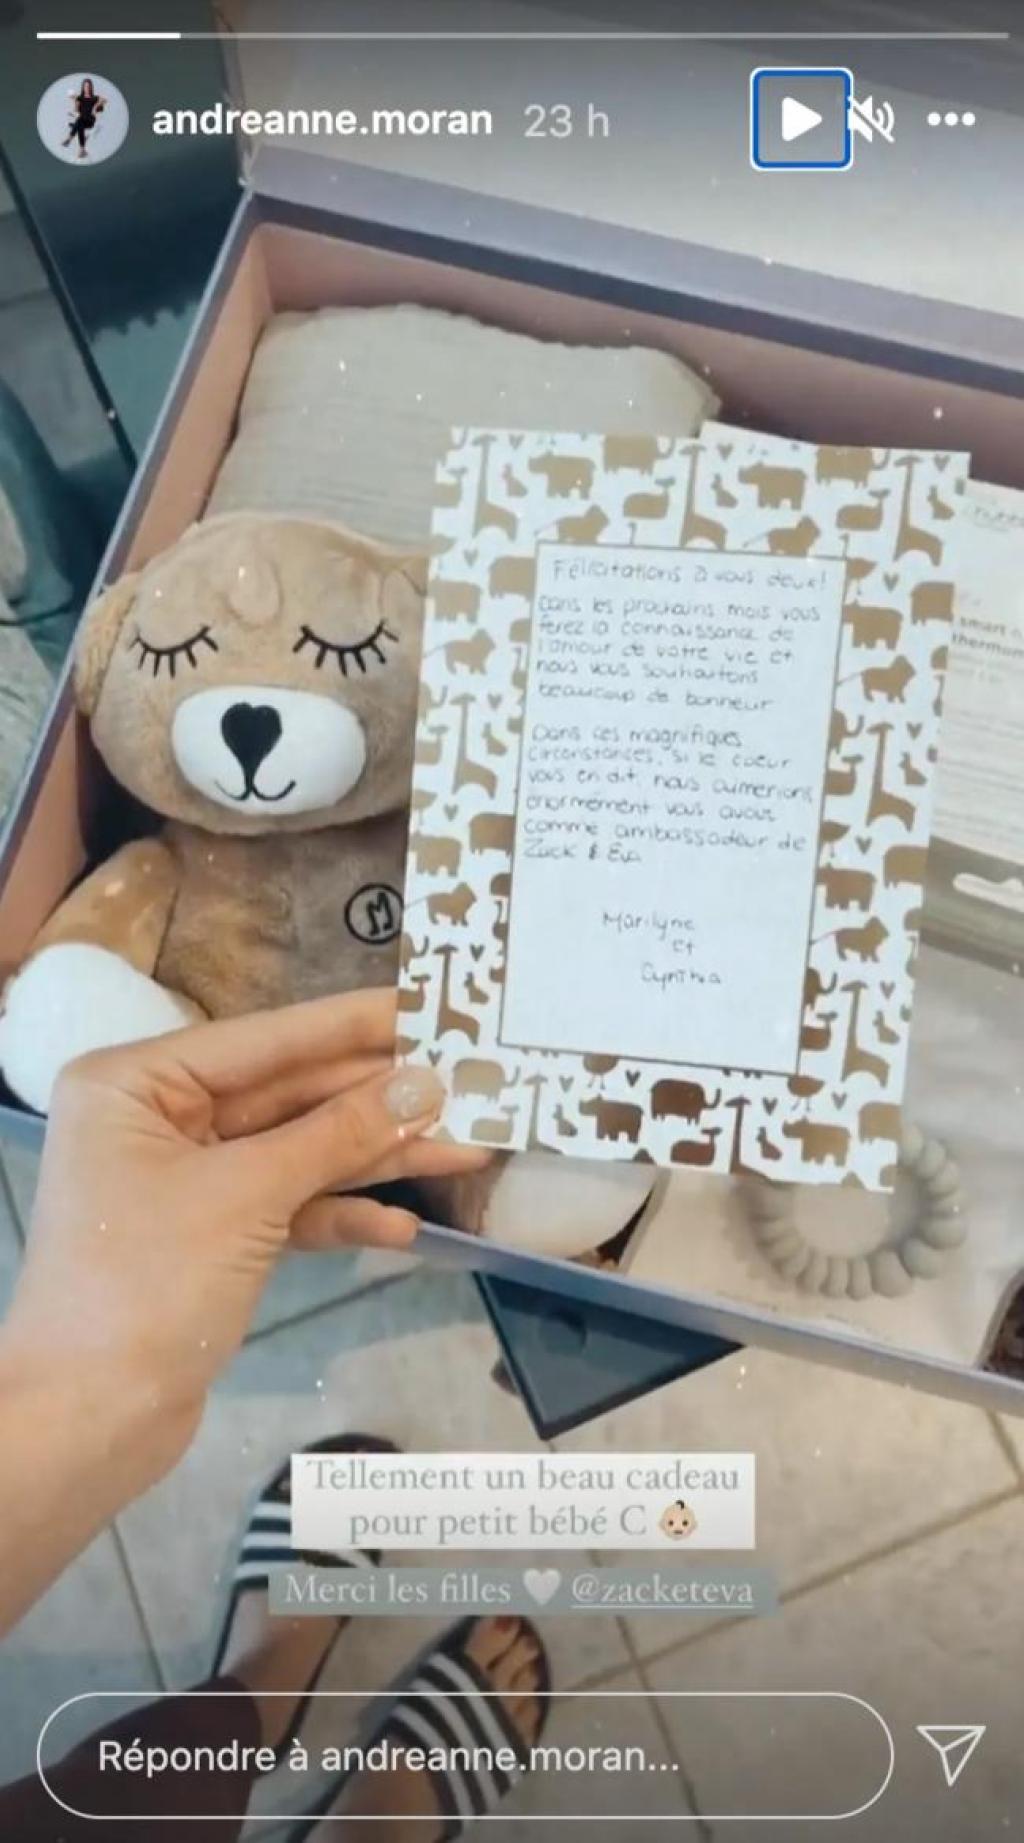 andreanne.moran 23 h
Félicitations à vous deux!
Dans les prochains mois vous
ferez la connaissance de
l'amour de votre vie et
nous vous souhaitons
beaucoup de bonheur
Dans ces magnifiques
circonstances, si le coeur
vous en dit, nous aimerions
énormément vous avoir
comme ambassadeur de
Zack & Eva
Marilyne
et
Cynthia
smart
Tellement un beau cadeau
pour petit bébé C 👶🏻
Merci les filles 🤍 @zacketeva
Répondre à andreanne.moran...